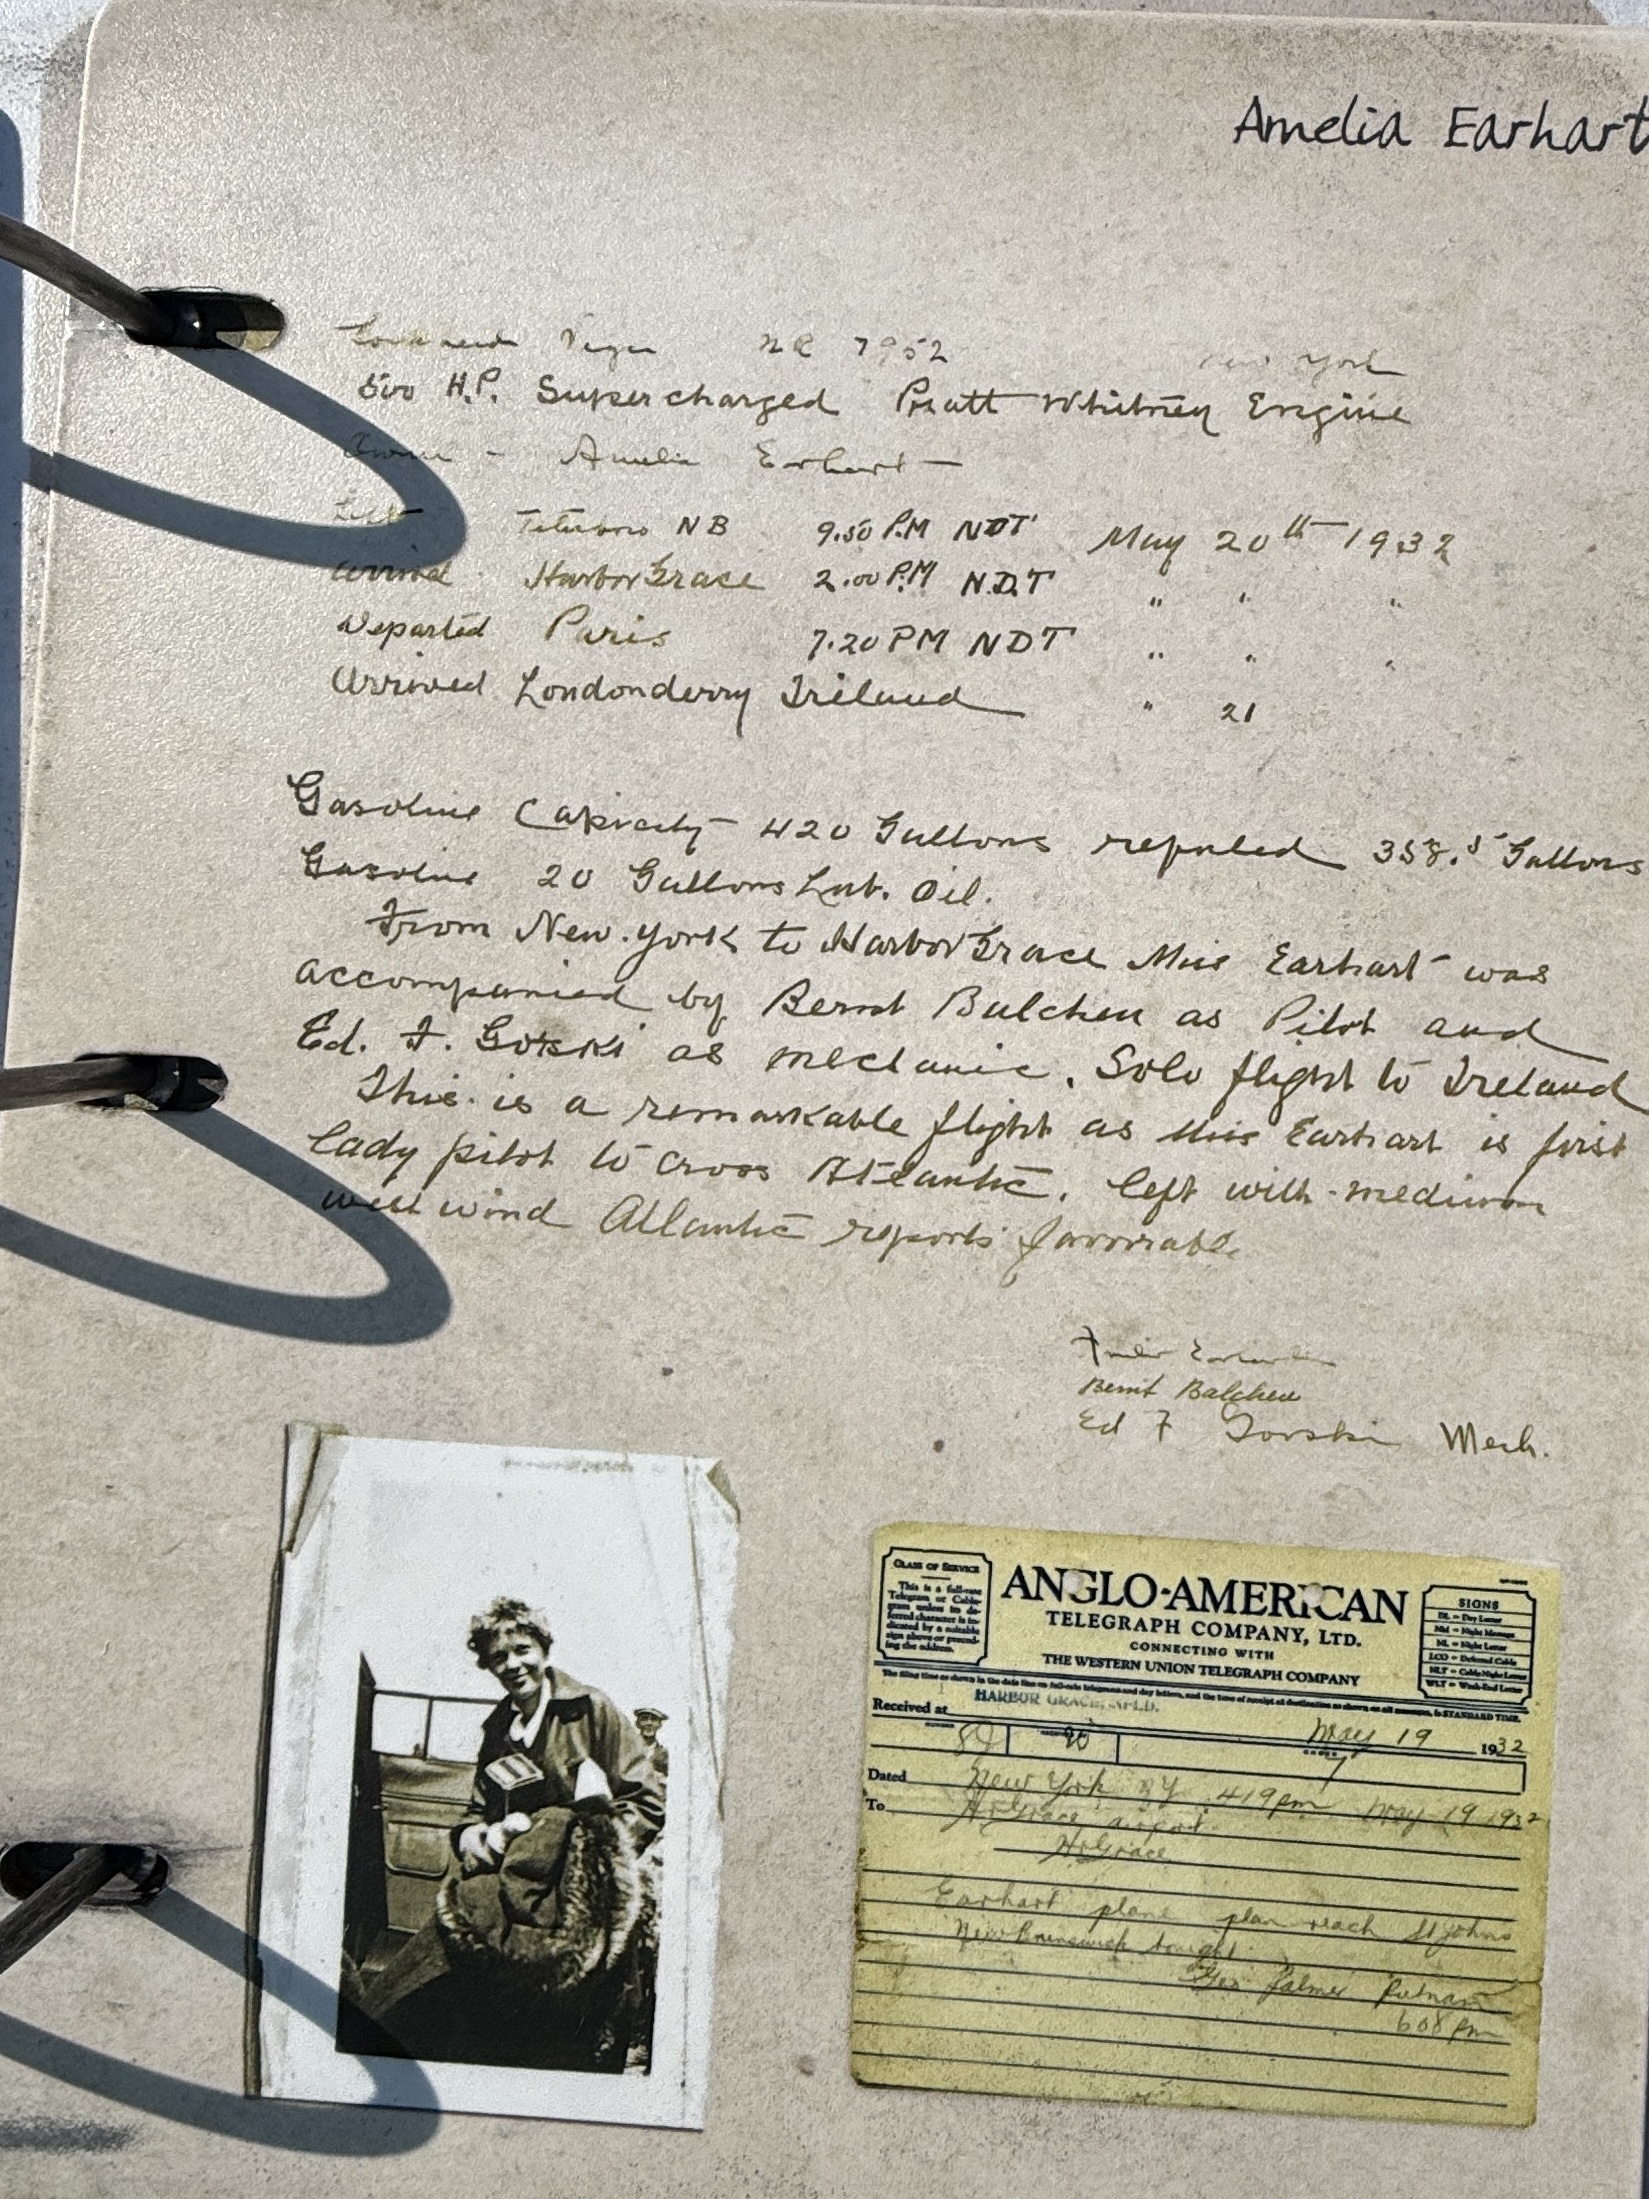 Amelia Earhart
Lockheed Vega NR 7952 New York
500 H.P. Supercharged Pratt Whitney Engine
Owner - Amelia Earhart
Left NB 9.50 P.M NDT May 20th 1932
arrived Harbor Grace 2.00 P.M N.D.T " " "
Departed Paris 7.20 PM NDT " " "
Arrived Londonderry Ireland " 21
Gasoline Capicity 420 Gallons refuled 358.5 Gallons
Gasoline 20 Gallons Lub. Oil.
From New York to Harbor Grace Miss Earhart was
accompanied by Bernt Balchen as Pilot and
Ed. F. Gorski as mechanic. Solo flight to Ireland
This is a remarkable flight as Miss Earhart is first
lady pilot to cross Atlantic. left with medium
west wind Atlantic reports favorable
Amelia Earhart
Bernt Balchen
Ed F Gorski Mech.
CLASS OF SERVICE
This is a full-rate
Telegram or Cable-
gram unless its de-
ferred character is in-
dicated by a suitable
sign above or preced-
ing the address.
ANGLO-AMERICAN
TELEGRAPH COMPANY, LTD.
CONNECTING WITH
THE WESTERN UNION TELEGRAPH COMPANY
SIGNS
DL = Day Letter
NM = Night Message
NL = Night Letter
LCO = Deferred Cable
NLT = Cable Night Letter
WLT = Week-End Letter
The filing time as shown in the date line on full-rate telegrams and day letters, and the time of receipt at destination as shown on all messages, is STANDARD TIME.
Received at HARBOR GRACE, NFLD.
May 19 1932
Dated New York NY 419pm May 19 1932
To Hr Grace airport
Hr Grace
Earhart plane plan reach St Johns
New Brunswick tonight
Geo Palmer Putnam
608 pm